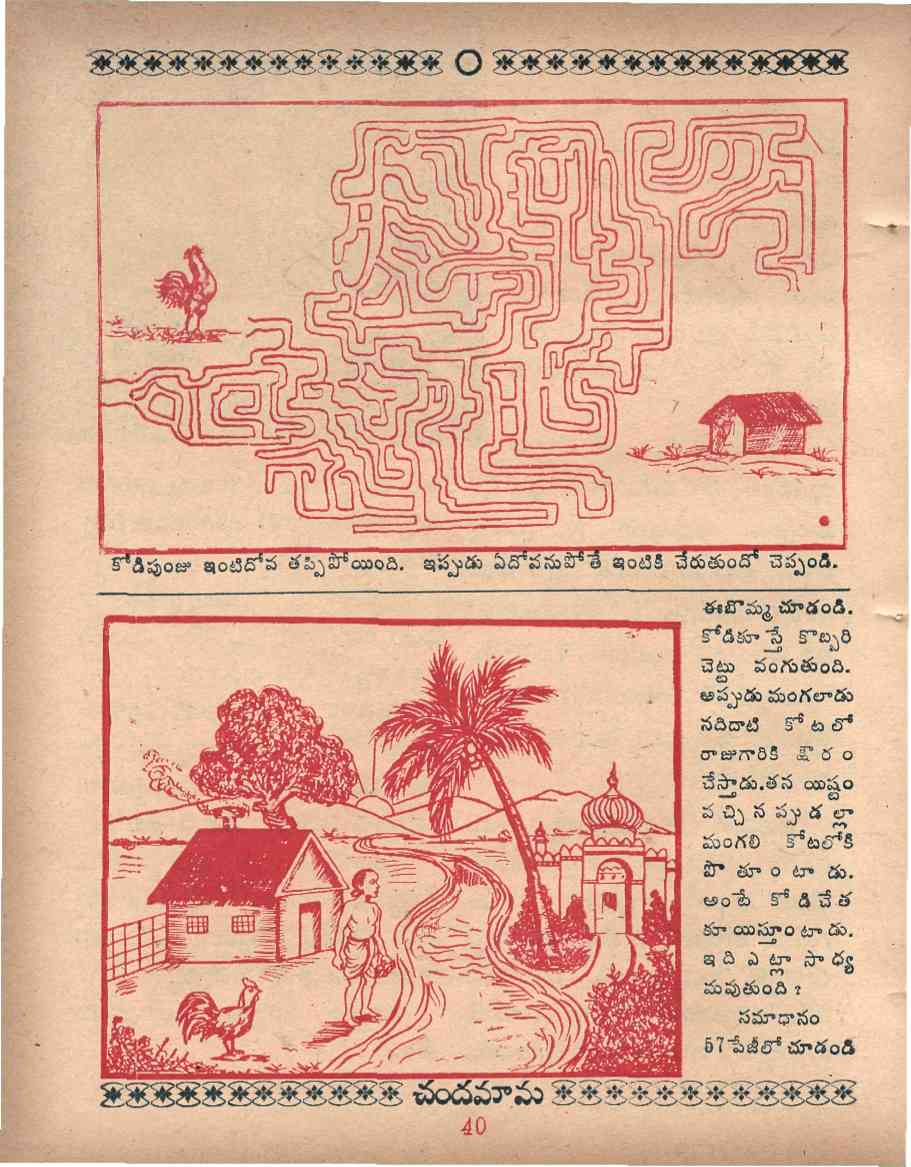 కోడిపుంజు ఇంటిదోవ తప్పిపోయింది. ఇప్పుడు ఏదోవనుపోతే ఇంటికి చేరుతుందో చెప్పండి.
ఈబొమ్మ చూడండి.
కోడికూస్తే కొబ్బరి
చెట్టు వంగుతుంది.
అప్పుడు మంగలాడు
నదిదాటి కోటలో
రాజుగారికి క్షౌరం
చేస్తాడు. తన యిష్టం
వచ్చినప్పుడల్లా
మంగలి కోటలోకి
పొతూంటాడు.
అంటే కోడిచేత
కూయిస్తూంటాడు.
ఇది ఎట్లా సాధ్య
మవుతుంది ?
సమాధానం
57 పేజీలో చూడండి
చందమామ
40